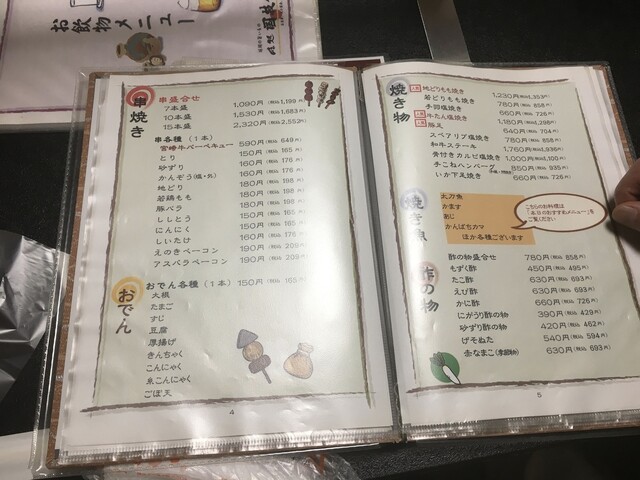 お飲物メニュー
串焼き
串盛合せ
7本盛 1,090円(税込1,199円)
10本盛 1,530円(税込1,683円)
15本盛 2,320円(税込2,552円)
串各種(1本)
宮崎牛バーベキュー 590円(税込 649円)
とり 150円(税込 165円)
砂ずり 160円(税込 176円)
かんぞう(塩・タレ) 160円(税込 176円)
地どり 180円(税込 198円)
若鶏もも 180円(税込 198円)
豚バラ 180円(税込 198円)
ししとう 150円(税込 165円)
にんにく 150円(税込 165円)
しいたけ 160円(税込 176円)
えのきベーコン 190円(税込 209円)
アスパラベーコン 190円(税込 209円)
おでん
おでん各種(1本) 150円(税込 165円)
大根
たまご
すじ
豆腐
厚揚げ
きんちゃく
こんにゃく
糸こんにゃく
ごぼ天
4
焼き物
地どりもも焼き 1,230円(税込1,353円)
若どりもも焼き 780円(税込 858円)
手羽塩焼き 660円(税込 726円)
牛たん塩焼き 1,180円(税込1,298円)
豚足 640円(税込 704円)
スペアリブ塩焼き 780円(税込 858円)
和牛ステーキ 1,760円(税込1,936円)
骨付きカルビ塩焼き 1,000円(税込1,100円)
手こねハンバーグ 850円(税込 935円)
いか下足焼き 660円(税込 726円)
焼き魚
太刀魚
かます
あじ
かんぱちカマ
ほか各種ございます
こちらのお料理は
「本日のおすすめメニュー」を
ご覧ください
酢の物
酢の物盛合せ 780円(税込 858円)
もずく酢 450円(税込 495円)
たこ酢 630円(税込 693円)
えび酢 630円(税込 693円)
かに酢 660円(税込 726円)
にがうり酢の物 390円(税込 429円)
砂ずり酢の物 420円(税込 462円)
げそぬた 540円(税込 594円)
赤なまこ(季節物) 630円(税込 693円)
5